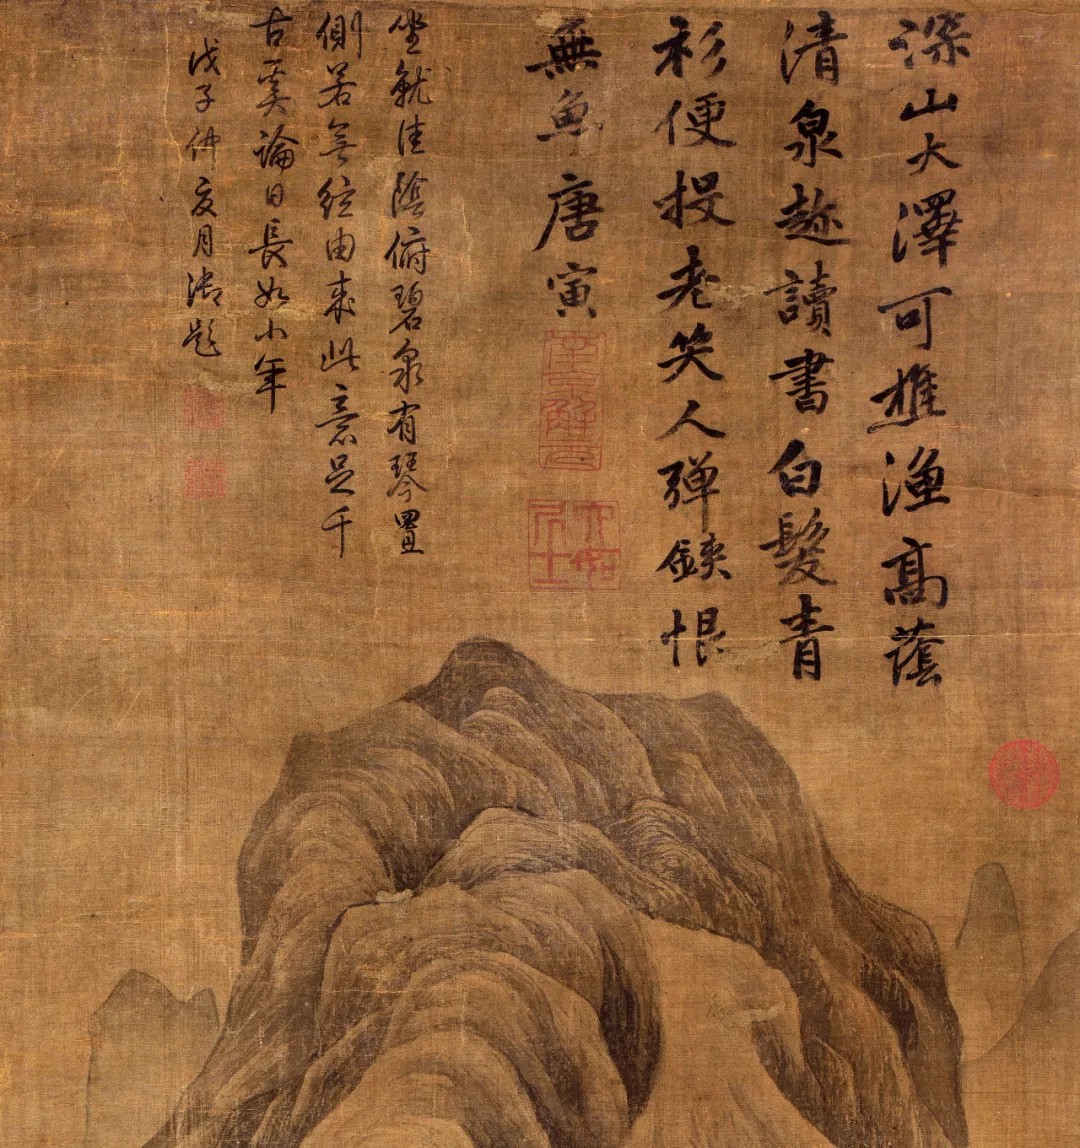 深山大澤可樵漁高蔭
清泉趂讀書白髮青
衫便投老笑人彈鋏恨
無魚唐寅
南京解元
六如居士
坐就佳陰俯碧泉有琴置
側若無絃由來此意足千
古奚論日長如小年
戊子仲夏月御題